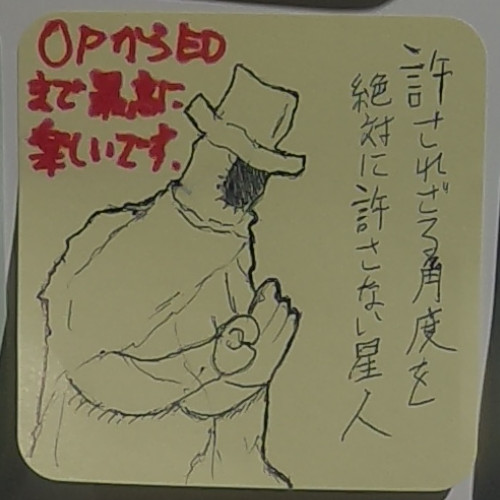 許されざる角度を
絶対に許さない星人
OPからED
まで最高に
楽しいです。